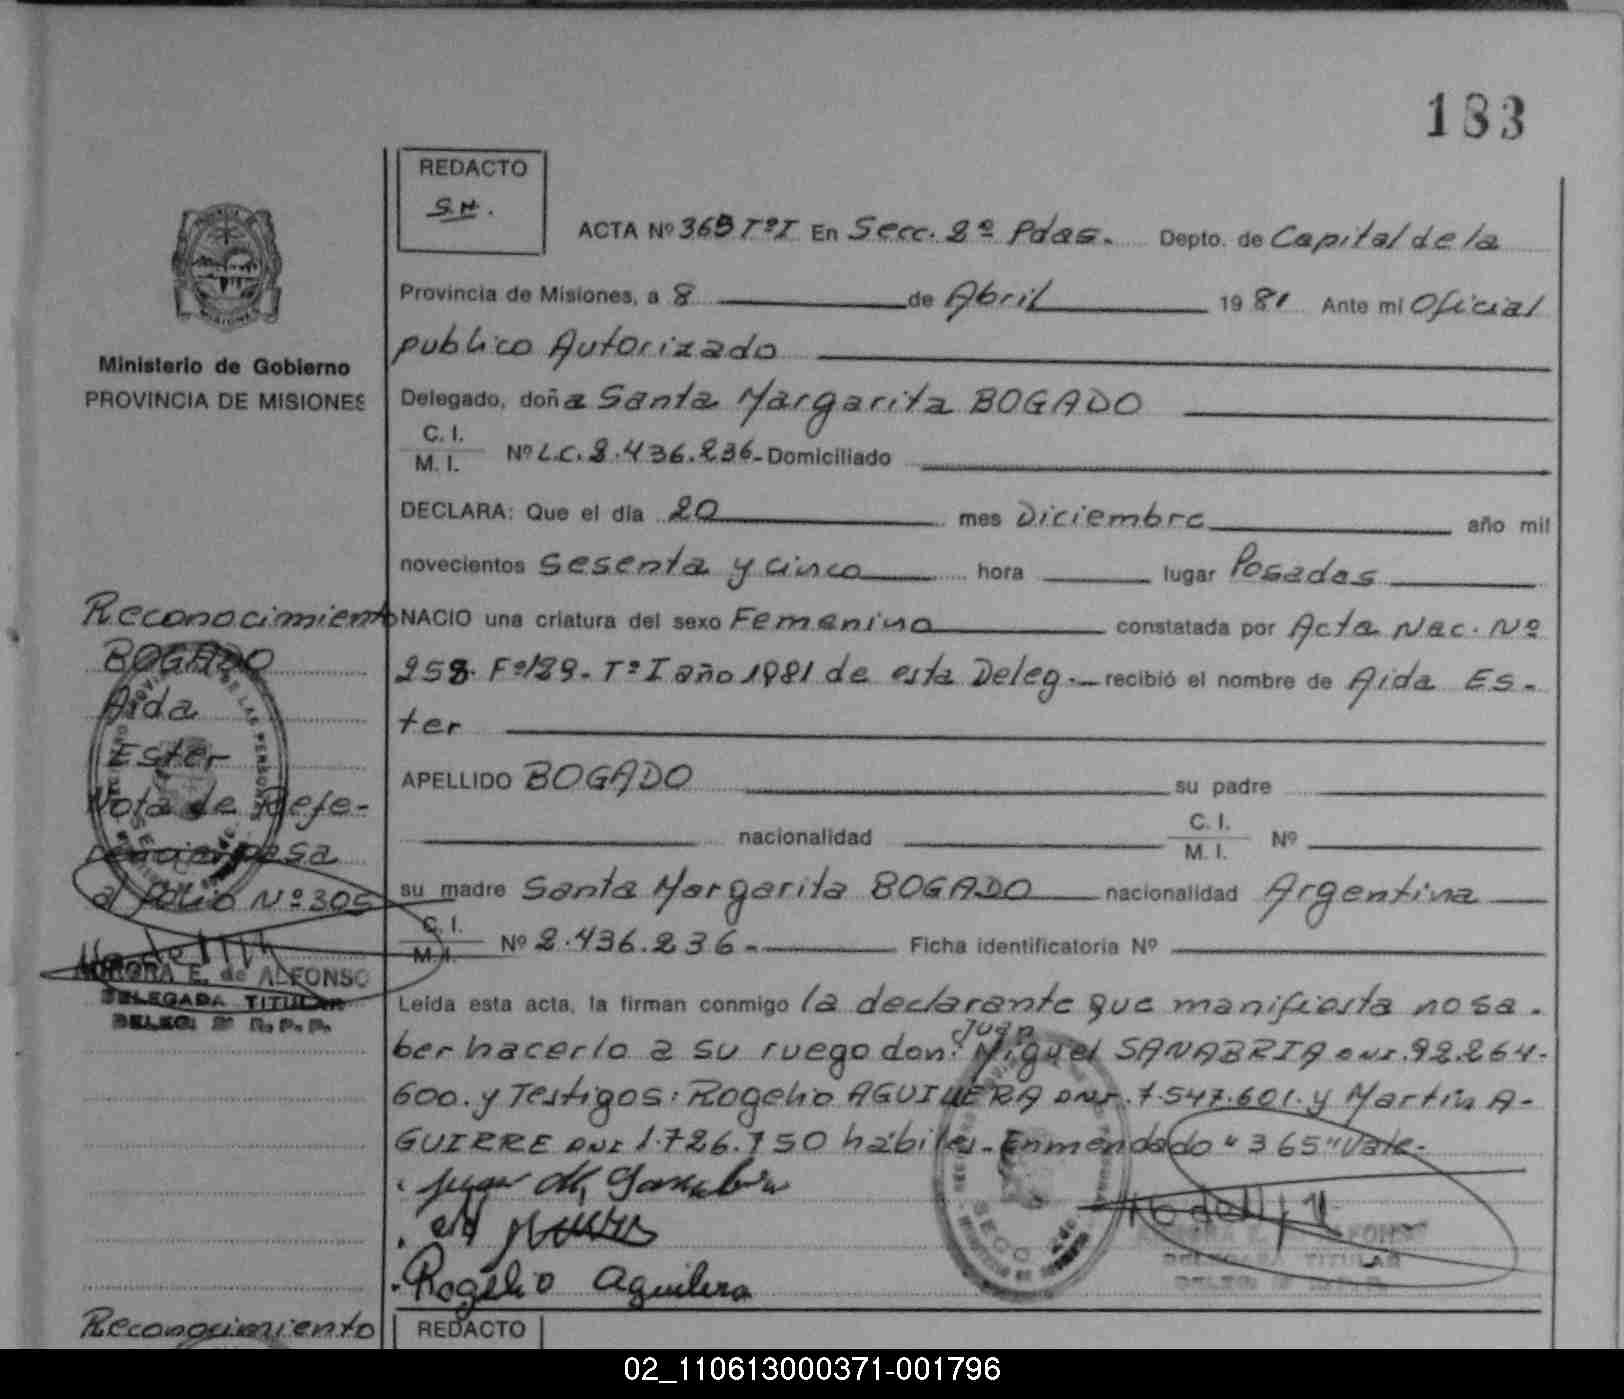 183
REDACTO
S.H.
ACTA Nº 365 TºI En Secc. 2º Pdas. Depto. de Capital de la
Provincia de Misiones, a 8 de Abril 1981 Ante mi Oficial
publico Autorizado
Ministerio de Gobierno
PROVINCIA DE MISIONES
Delegado, doña Santa Margarita BOGADO
C. I.
M. I. Nº L.C. 2.436.236- Domiciliado
DECLARA: Que el día 20 mes Diciembre año mil
novecientos sesenta y cinco hora lugar Posadas
NACIO una criatura del sexo Femenino constatada por Acta Nac. Nº
258. Fº129. TºI año 1981 de esta Deleg. recibió el nombre de Aida Es-
ter
APELLIDO BOGADO su padre
nacionalidad C. I. M. I. Nº
su madre Santa Margarita BOGADO nacionalidad Argentina
C. I.
M. I. Nº 2.436.236- Ficha identificatoria Nº
Leída esta acta, la firman conmigo la declarante que manifiesta no sa-
ber hacerlo a su ruego don: Juan Miguel SANABRIA DNI. 92.264-
600. y Testigos: Rogelio AGUILERA DNI. 7.547.601. y Martin A-
GUIRRE DNI 1.726.750 hábiles- Enmendado "365" Vale-
Rogelio Aguilera
Reconocimiento
BOGADO
Aida
Ester
Nota de Refe-
rencia pasa
al folio Nº 305
AURORA E. de ALFONSO
DELEGADA TITULAR
DELEG. 2º R.P.P.
DELEGADA TITULAR
Reconocimiento
REDACTO
02_110613000371-001796